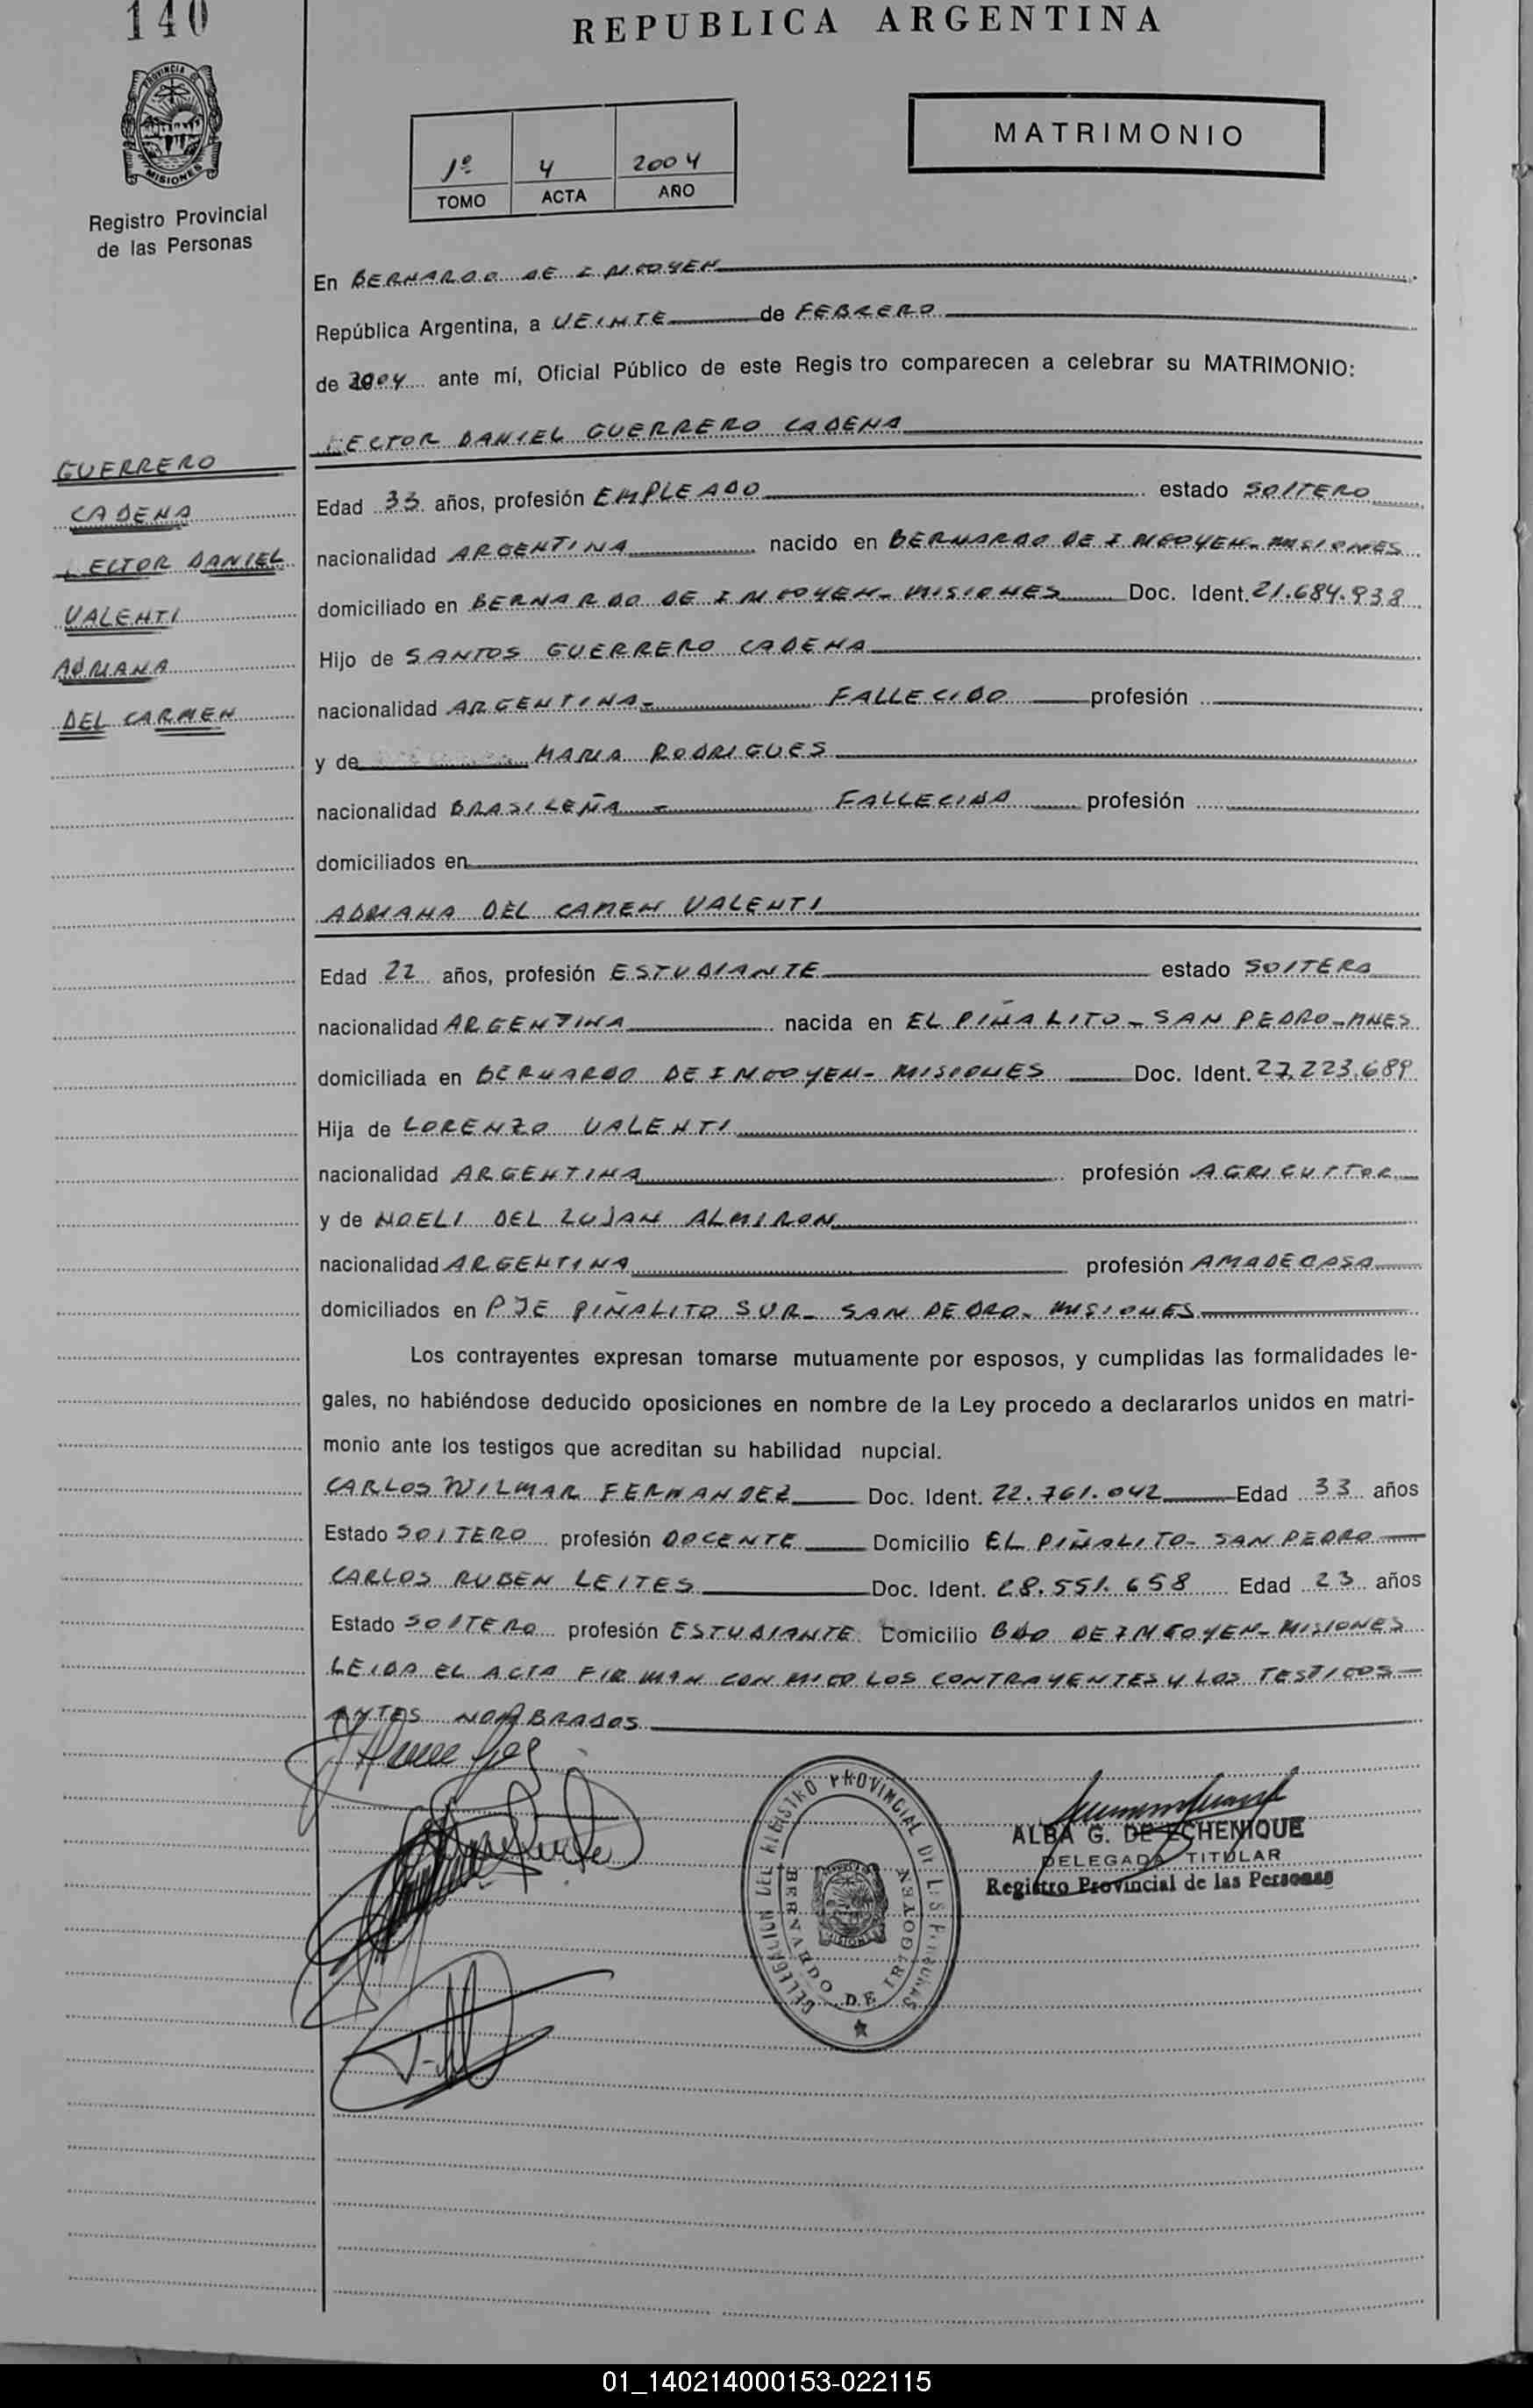 140
REPUBLICA ARGENTINA
PROVINCIA DE
MISIONES
Registro Provincial
de las Personas
MATRIMONIO
1º 4 2004
TOMO ACTA AÑO
En BERNARDO DE IRIGOYEN
República Argentina, a VEINTE de FEBRERO
de 2004 ante mí, Oficial Público de este Regis tro comparecen a celebrar su MATRIMONIO:
ECTOR DANIEL GUERRERO CADENA
GUERRERO
CADENA
ECTOR DANIEL
VALENTI
ADRIANA
DEL CARMEN
Edad 33 años, profesión EMPLEADO estado SOLTERO
nacionalidad ARGENTINA nacido en BERNARDO DE IRIGOYEN - MISIONES
domiciliado en BERNARDO DE IRIGOYEN - MISIONES Doc. Ident. 21.684.938
Hijo de SANTOS GUERRERO CADENA
nacionalidad ARGENTINA - FALLECIDO profesión
y de MARIA RODRIGUES
nacionalidad BRASILEÑA - FALLECIDA profesión
domiciliados en
ADRIANA DEL CAMEN VALENTI
Edad 22 años, profesión ESTUDIANTE estado SOLTERA
nacionalidad ARGENTINA nacida en EL PIÑALITO - SAN PEDRO - MNES
domiciliada en BERNARDO DE IRIGOYEN - MISIONES Doc. Ident. 27.223.689
Hija de LORENZO VALENTI
nacionalidad ARGENTINA profesión AGRICULTOR
y de NOELI DEL LUJAN ALMIRON
nacionalidad ARGENTINA profesión AMA DE CASA
domiciliados en PJE PIÑALITO SUR - SAN PEDRO - MISIONES
Los contrayentes expresan tomarse mutuamente por esposos, y cumplidas las formalidades le-
gales, no habiéndose deducido oposiciones en nombre de la Ley procedo a declararlos unidos en matri-
monio ante los testigos que acreditan su habilidad nupcial.
CARLOS WILMAR FERNANDEZ Doc. Ident. 22.761.042 Edad 33 años
Estado SOLTERO profesión DOCENTE Domicilio EL PIÑALITO - SAN PEDRO
CARLOS RUBEN LEITES Doc. Ident. 28.551.658 Edad 23 años
Estado SOLTERO profesión ESTUDIANTE Domicilio BDO DE IRIGOYEN - MISIONES
LEIDA EL ACTA FIRMAN CON MIGO LOS CONTRAYENTES Y LOS TESTIGOS
ANTES NOMBRADOS
DELEGACION DEL REGISTRO PROVINCIAL DE LAS PERSONAS
BERNARDO DE IRIGOYEN
MISIONES
ALBA G. DE ECHENIQUE
DELEGADA TITULAR
Registro Provincial de las Personas
01_140214000153-022115